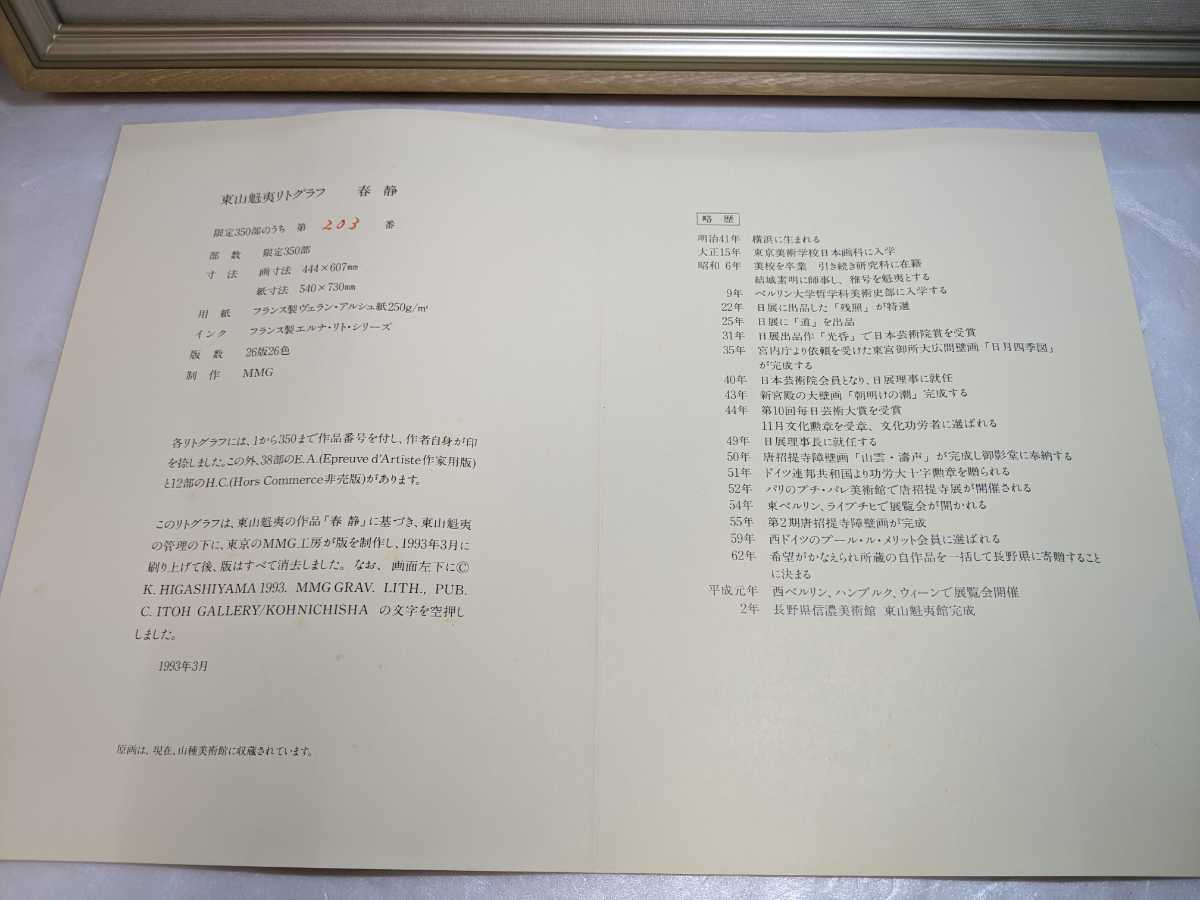 東山魁夷リトグラフ　春 静
限定350部のうち 第 203 番
部 数　限定350部
寸 法　画寸法 444×607㎜
紙寸法 540×730㎜
用 紙　フランス製ヴェラン・アルシュ紙250g/㎡
インク　フランス製エルナ・リト・シリーズ
版 数　26版26色
制 作　MMG
各リトグラフには、1から350まで作品番号を付し、作者自身が印
を捺しました。この外、38部のE.A.(Epreuve d'Artiste作家用版)
と12部のH.C.(Hors Commerce非売版)があります。
このリトグラフは、東山魁夷の作品「春 静」に基づき、東山魁夷
の管理の下に、東京のMMG工房が版を制作し、1993年3月に
刷り上げて後、版はすべて消去しました。なお、画面左下に©
K. HIGASHIYAMA 1993. MMG GRAV. LITH., PUB.
C. ITOH GALLERY/KOHNICHISHA の文字を空押し
しました。
1993年3月
原画は、現在、山種美術館に収蔵されています。
略 歴
明治41年　横浜に生まれる
大正15年　東京美術学校日本画科に入学
昭和 6年　美校を卒業　引き続き研究科に在籍
結城素明に師事し、雅号を魁夷とする
9年　ベルリン大学哲学科美術史部に入学する
22年　日展に出品した「残照」が特選
25年　日展に「道」を出品
31年　日展出品作「光昏」で日本芸術院賞を受賞
35年　宮内庁より依頼を受けた東宮御所大広間壁画「日月四季図」
が完成する
40年　日本芸術院会員となり、日展理事に就任
43年　新宮殿の大壁画「朝明けの潮」完成する
44年　第10回毎日芸術大賞を受賞
11月文化勲章を受章、文化功労者に選ばれる
49年　日展理事長に就任する
50年　唐招提寺障壁画「山雲・濤声」が完成し御影堂に奉納する
51年　ドイツ連邦共和国より功労大十字勲章を贈られる
52年　パリのプチ・パレ美術館で唐招提寺展が開催される
54年　東ベルリン、ライプチヒで展覧会が開かれる
55年　第2期唐招提寺障壁画が完成
59年　西ドイツのプール・ル・メリット会員に選ばれる
62年　希望がかなえられ所蔵の自作品を一括して長野県に寄贈すること
に決まる
平成元年　西ベルリン、ハンブルク、ウィーンで展覧会開催
2年　長野県信濃美術館 東山魁夷館完成